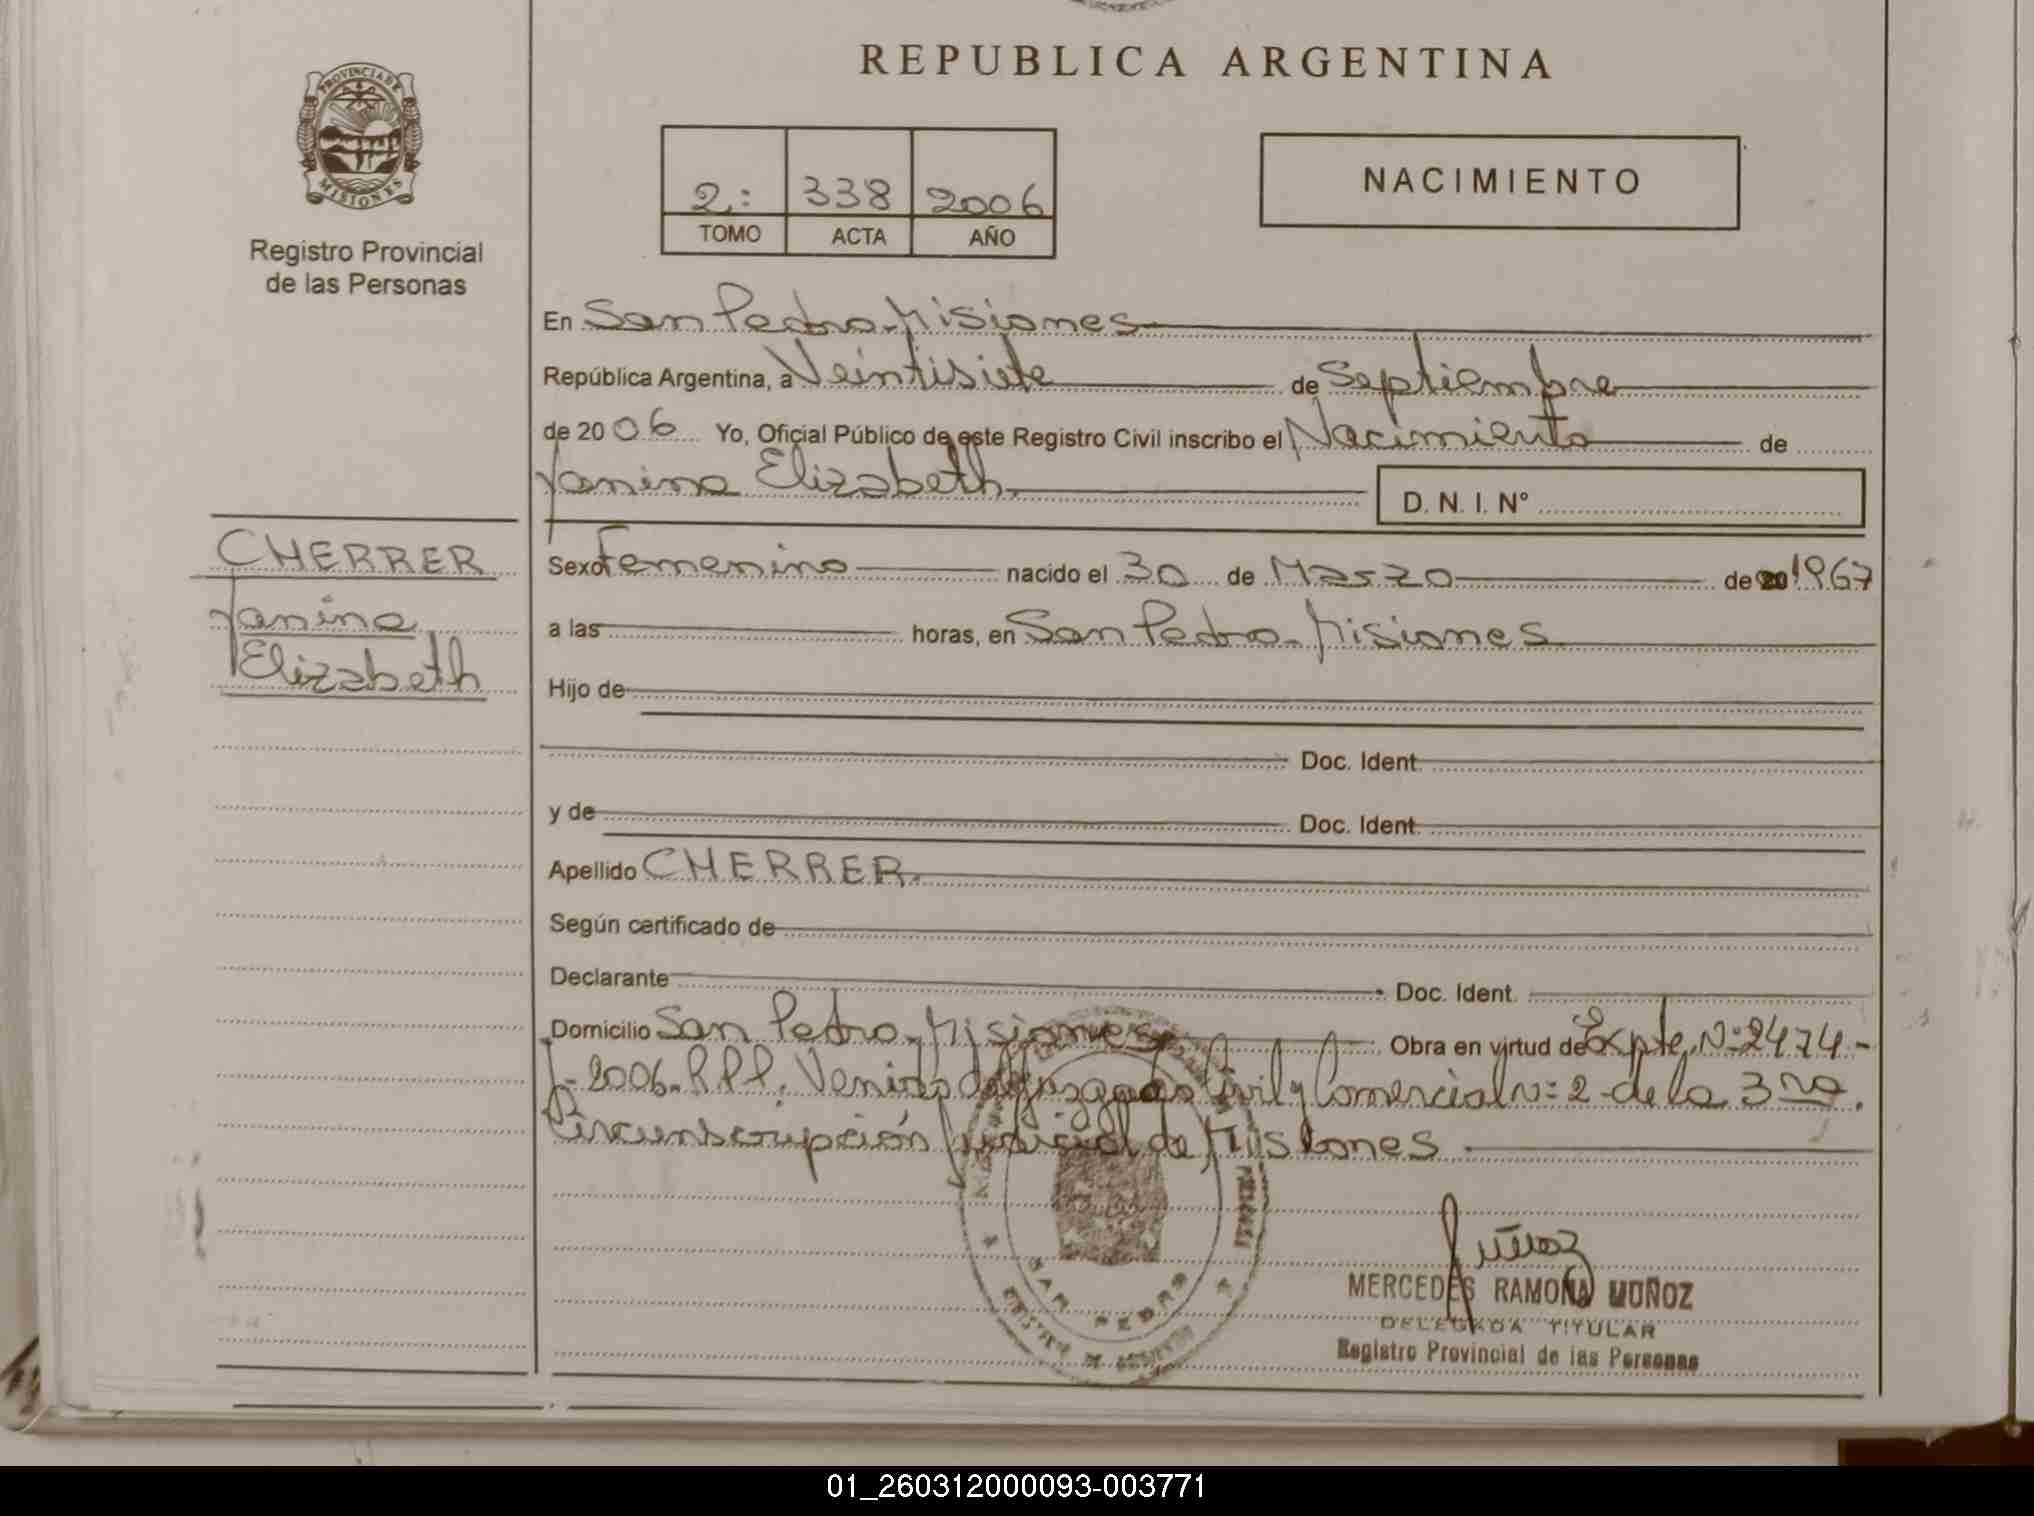 REPUBLICA ARGENTINA
PROVINCIA DE MISIONES
Registro Provincial
de las Personas
2: 338 2006
TOMO ACTA AÑO
NACIMIENTO
En San Pedro Misiones
República Argentina, a Veintisiete de Septiembre
de 2006 Yo, Oficial Público de este Registro Civil inscribo el Nacimiento de
Yanina Elizabeth
D. N. I. Nº
CHERRER
Yanina
Elizabeth
Sexo Femenino nacido el 30 de Marzo de 20 1967
a las horas, en San Pedro Misiones
Hijo de
Doc. Ident.
y de Doc. Ident.
Apellido CHERRER.
Según certificado de
Declarante Doc. Ident.
Domicilio San Pedro Misiones Obra en virtud de Expte. Nº 2474-
J-2006-RPP. Venido del Juzgado Civil y Comercial Nº 2 de la 3ra.
Circunscripción Judicial de Misiones
SAN PEDRO
Muñoz
MERCEDES RAMONA MUÑOZ
DELEGADA TITULAR
Registro Provincial de las Personas
01_260312000093-003771